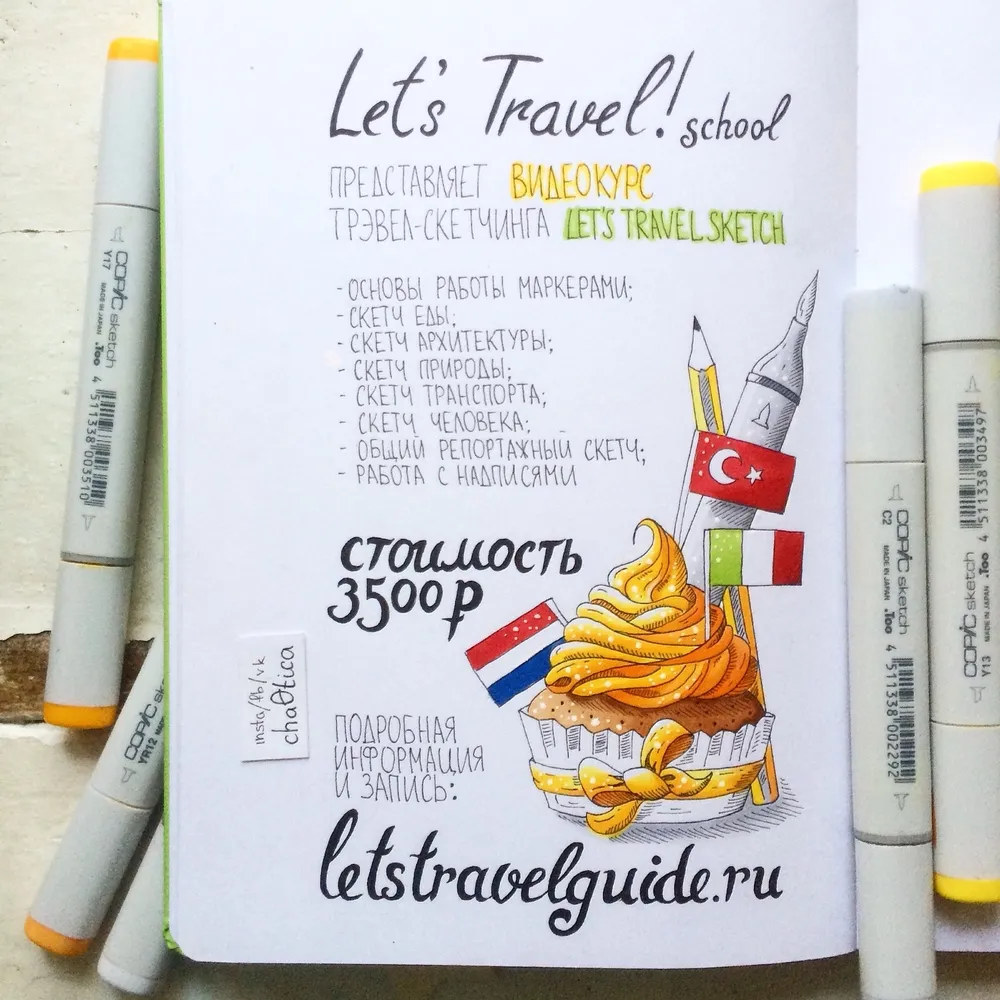 Let's Travel! school
ПРЕДСТАВЛЯЕТ ВИДЕОКУРС
ТРЭВЕЛ-СКЕТЧИНГА LET'S TRAVEL SKETCH
- ОСНОВЫ РАБОТЫ МАРКЕРАМИ;
- СКЕТЧ ЕДЫ;
- СКЕТЧ АРХИТЕКТУРЫ;
- СКЕТЧ ПРИРОДЫ;
- СКЕТЧ ТРАНСПОРТА;
- СКЕТЧ ЧЕЛОВЕКА;
- ОБЩИЙ РЕПОРТАЖНЫЙ СКЕТЧ;
- РАБОТА С НАДПИСЯМИ
стоимость
3500 р
insta/fb/vk
chaOtica
ПОДРОБНАЯ
ИНФОРМАЦИЯ
И ЗАПИСЬ:
letstravelguide.ru
COPIC sketch .Too 4 511338 003510
Y17 MADE IN JAPAN
COPIC
YR12
COPIC sketch .Too 4 511338 002292
C2 MADE IN JAPAN
COPIC sketch .Too 4 511338 003497
Y13 MADE IN JAPAN